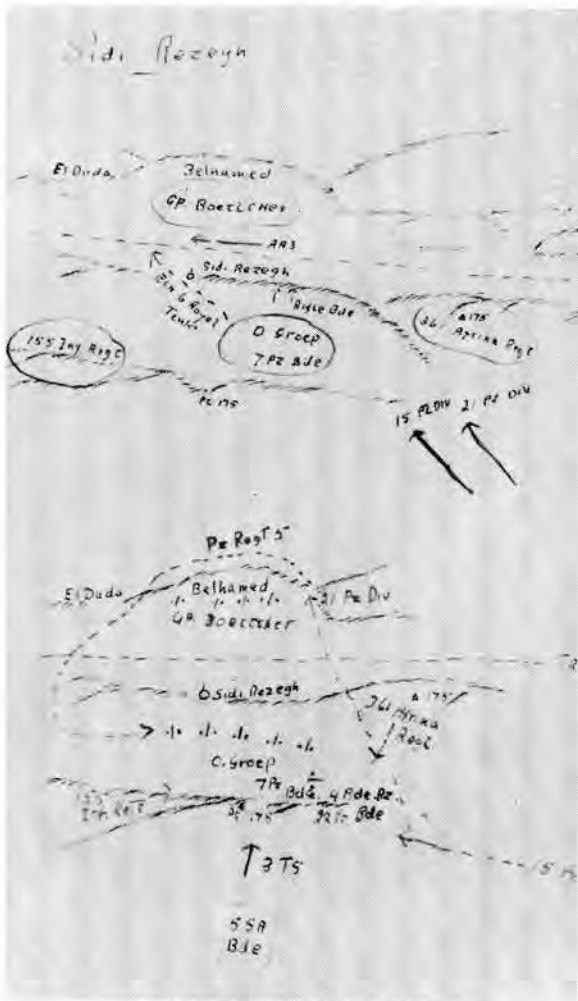 Sidi Rezegh
El Duda
Belhamed
GP. Boettcher
AA3
Sidi Rezegh
6 Royal
Tanks
Rifle Bde
175
361 Afrika Regt
O Groep
7 Pz Bde
155 Inf Regt
Pt 175
15 Pz Div
21 Pz Div
Pz Regt 5
El Duda
Belhamed
21 Pz Div
GP. Boettcher
6 Sidi Rezegh
175
361 Afrika
Regt.
O. Groep
7 Pz
Bde. 4 Bde Pz
155
Inf. Regt
175
22 Bde
15
3 TS
5 SA
Bde